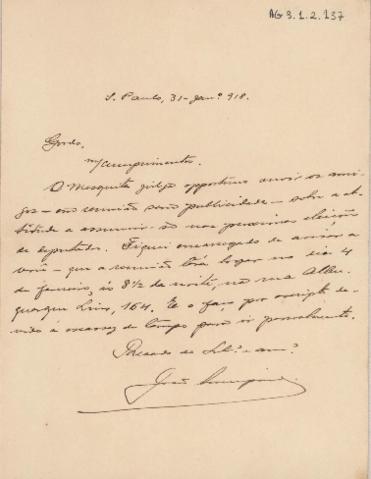 AG 3.1.2.137
S. Paulo, 31-janº 918.
Gordo,
m/cumprimentos.
O Mesquita julga opportuno ouvir os ami-
gos - em reunião sem publicidade - sobre a at-
titude a assumir-se nas proximas eleições
de deputados. Fiquei encarregado de avisar a
você - que a reunião terá logar no dia 4
de fevereiro, ás 8½ da noite, na rua Albu-
querque Lins, 164. E o faço por escripto de-
vido á escassez de tempo para ir pessoalmente.
do
João